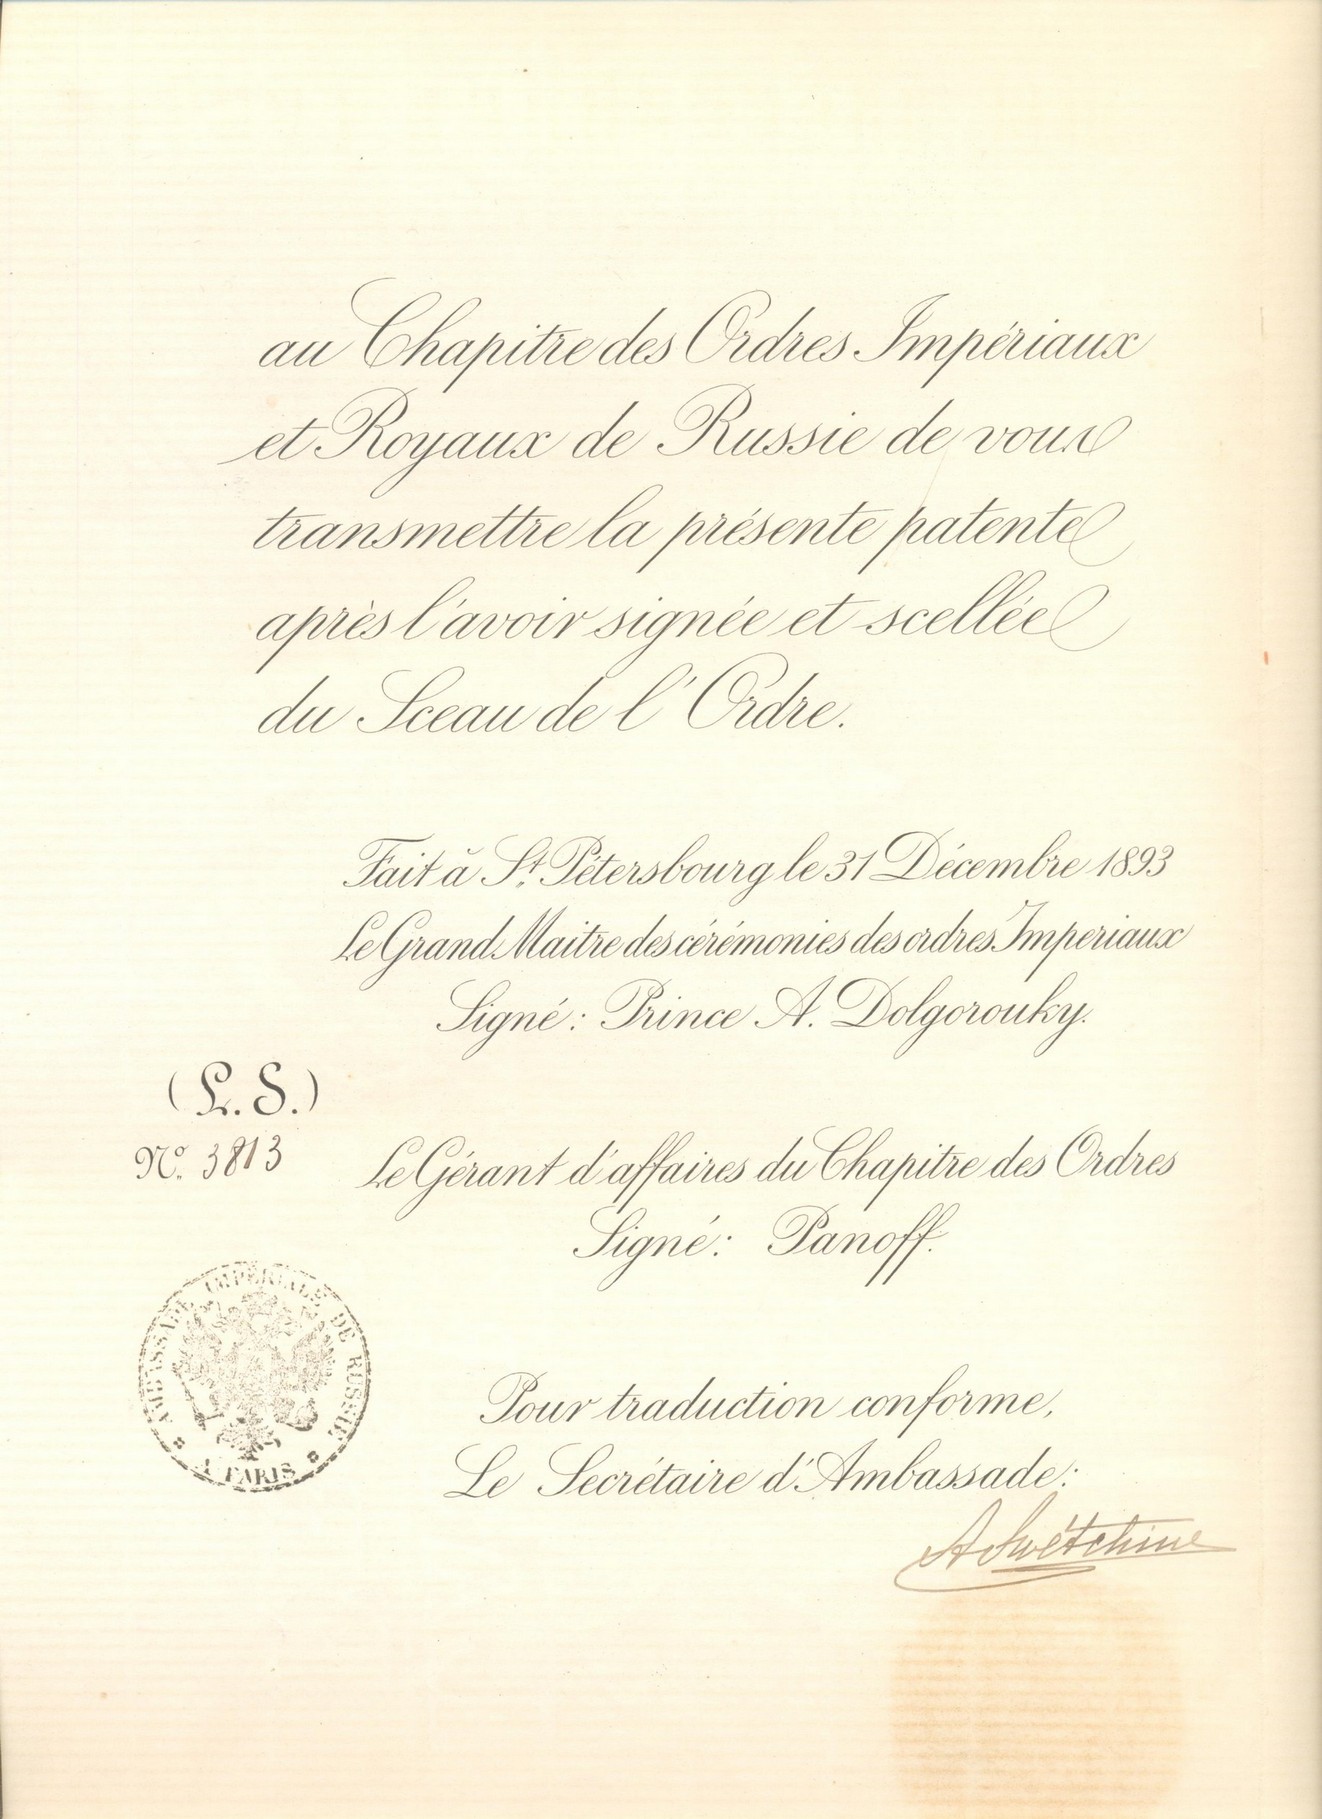 au Chapitre des Ordres Impériaux
et Royaux de Russie de vous
transmettre la présente patente
après l'avoir signée et scellée
du Sceau de l'Ordre.
Fait à St. Pétersbourg le 31 Décembre 1893
Le Grand Maitre des cérémonies des ordres Imperiaux
Signé: Prince A. Dolgorouky.
(L. S.)
No. 3813
Le Gérant d'affaires du Chapitre des Ordres
Signé: Panoff.
AMBASSADE IMPÉRIALE DE RUSSIE
A PARIS
Pour traduction conforme,
Le Secrétaire d'Ambassade:
A Swétchine